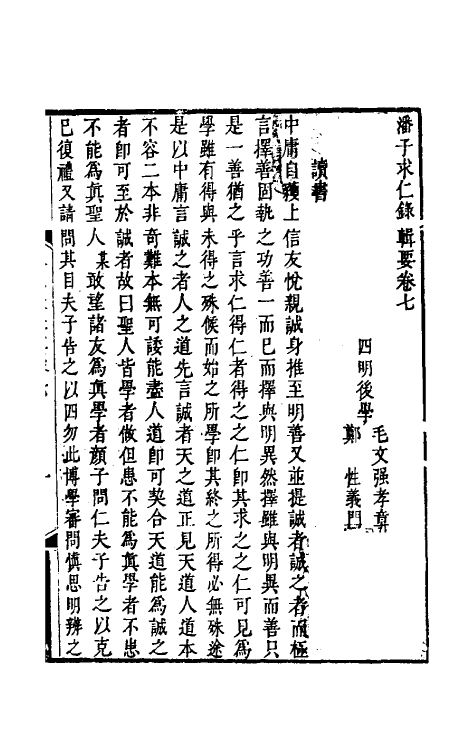 潘子求仁錄輯要卷七
四明後學
毛文强孝章
鄭性義門
讀書
中庸自獲上信友悅親誠身推至明善又並提誠者誠之者而極
言擇善固執之功善一而已而擇與明異然擇雖與明異而善只
是一善猶之乎言求仁得仁者得之之仁即其求之之仁可見為
學雖有得與未得之殊候而始之所學即其終之所得必無殊途
是以中庸言誠之者人之道先言誠者天之道正見天道人道本
不容二本非奇難本無可諉能盡人道即可契合天道能為誠之
者即可至於誠者故曰聖人皆學者做但患不能為眞學者不患
不能為眞聖人某敢望諸友為眞學者顏子問仁夫子告之以克
已復禮又請問其目夫子告之以四勿此博學審問慎思明辨之